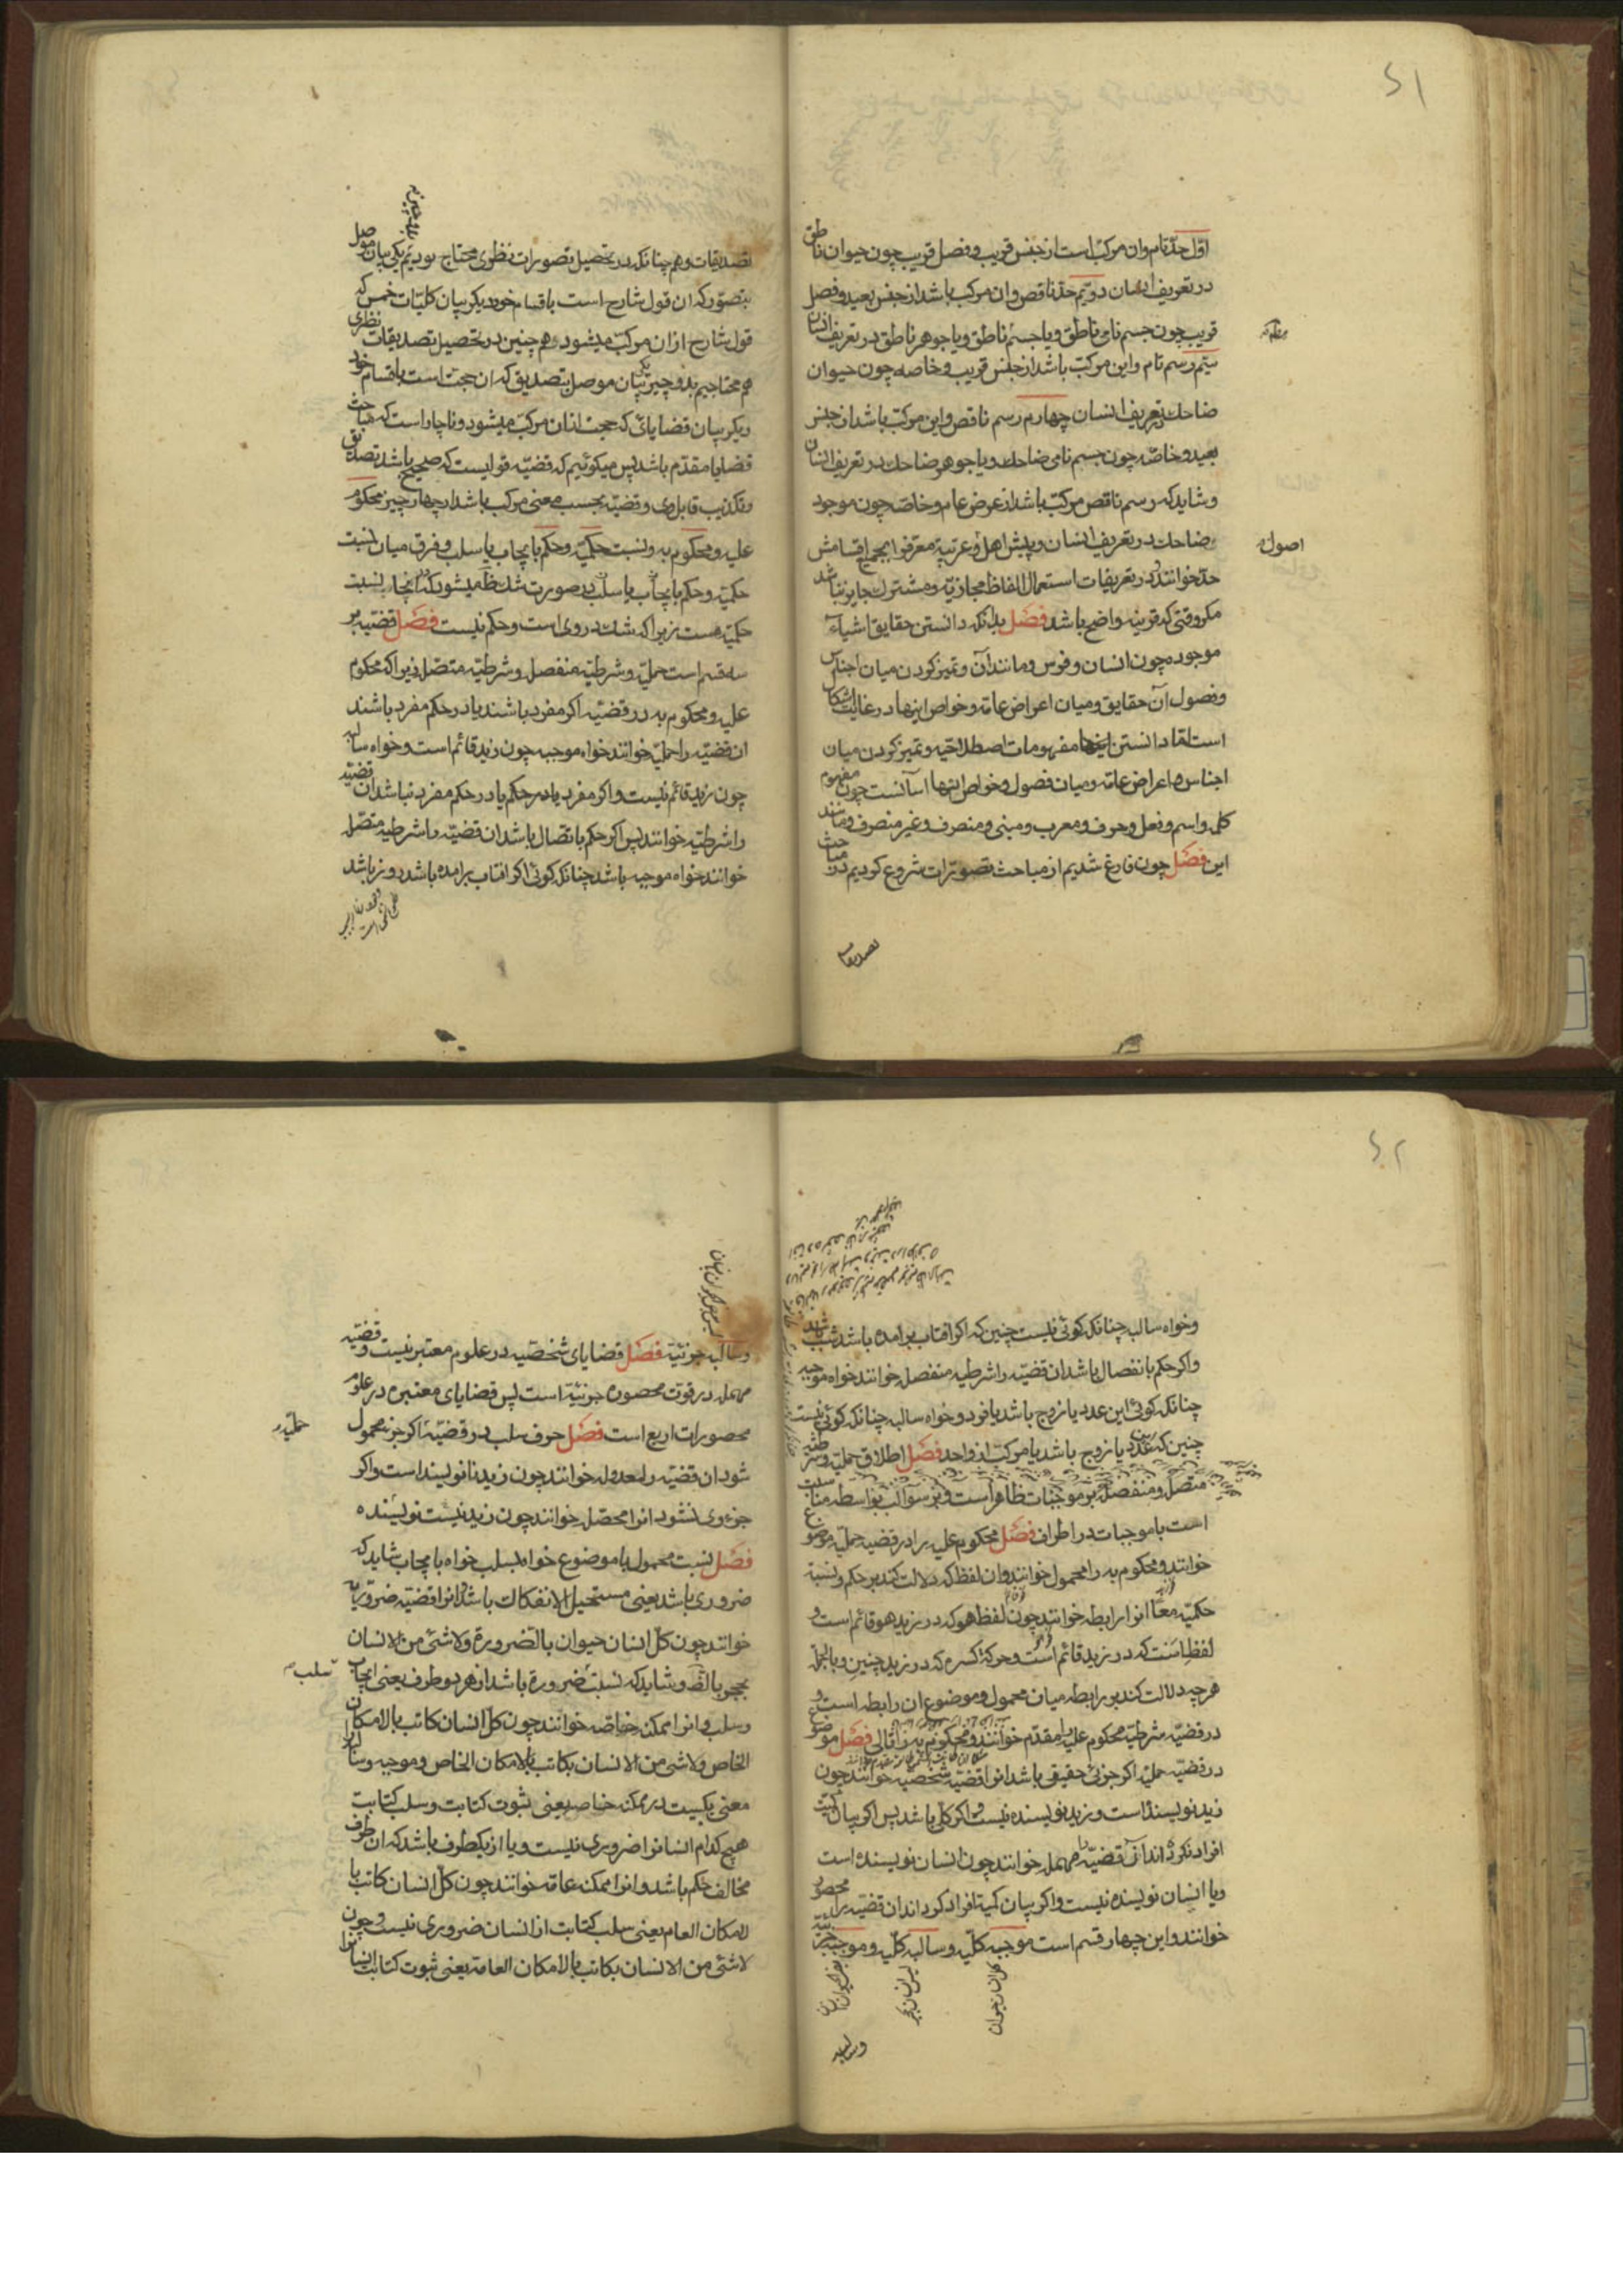 ۵۱
اوّل حدّ تام وان مرکب است از جنس قریب و فصل قریب چون حیوان ناطق
در تعریف انسان دویّم حدّ ناقص وان مرکب باشد از جنس بعید و فصل
قریب چون جسم نامی ناطق و یا جسم ناطق و یا جوهر ناطق در تعریف انسان
سیّم رسم تام و این مرکّب باشد از جنس قریب و خاصه چون حیوان
ضاحك در تعریف انسان چهارم رسم ناقص و این مرکّب باشد از جنس
بعید و خاصّه چون جسم نامی ضاحك و یا جوهر ضاحك در تعریف انسان
و شاید که رسم ناقص مرکّب باشد از عرض عام و خاصّه چون موجود
ضاحك در تعریف انسان و پیش اهل عربیّه معرّف را بجمیع اقسامش
اصول
حدّ خوانند و در تعریفات استعمال الفاظ مجازیّه و مشترك جایز نباشد
مکر وقتی که قرینه واضح باشد فصل بدانکه دانستن حقایق اشیاء
موجوده چون انسان و فرس و مانند آن و تمیز کردن میان اجناس
و فصول آن حقایق و میان اعراض عامّه و خواص اینها در غایت اشکال
است امّا دانستن مفهومات اصطلاحیّه و تمیز کردن میان
اجناس و اعراض عامّه و میان فصول و خواص اینها آسانست چون مفهوم
کلمه و اسم و فعل و حرف و معرب و مبنی و منصرف و غیر منصرف و مانند
این فصل چون فارغ شدیم از مباحث تصوّرات شروع کردیم در مباحث
تصدیقات
تصدیقات و هم چنانکه در تحصیل تصورات نظری محتاج بودیم یکی بیان موصل
بتصوّر که ان قول شارح است باقسام خود دیکر بیان کلیّات خمس که
قول شارح ازان مرکّب میشود هم چنین در تحصیل تصدیقات نظری
هم محتاجیم بدو چیز یکی بیان موصل بتصدیق که ان حجت است باقسام خود
دیکر بیان قضایائی که حجت ازان مرکّب میشود و ناچار است که مباحث
قضایا مقدّم باشد پس میکوئیم که قضیّه قولیست که صحیح باشد تصدیق
و تکذیب قایل وی و قضیّه بحسب معنی مرکب باشد از چهار چیز محکوم
علیه و محکوم به و نسبت حکمیّه و حکم بایجاب یا سلب و فرق میان نسبت
حکمیّه و حکم بایجاب یا سلب در صورت شك ظاهر میشود که انجا نسبت
حکمیّه هست زیرا که شك در وی است و حکم نیست فصل قضیّه بر
سه قسم است حملیّه و شرطیّه منفصل و شرطیّه متصّل زیرا که محکوم
علیه و محکوم به در قضیّه اکر مفرد باشند یا در حکم مفرد باشند
ان قضیّه را حملیّه خوانند خواه موجبه چون زید قائم است و خواه سالبه
چون زید قائم نیست و اکر مفرد یا در حکم مفرد نباشد ان قضیّه
را شرطیّه خوانند پس اکر حکم باتصال باشد ان قضیّه را شرطیه متصّل
خوانند خواه موجبه باشد چنانکه کوئی اکر افتاب برامده باشد روز باشد
۵۲
و خواه سالبه چنانکه کوئی نیست چنین که اکر افتاب برامده باشد شب باشد
و اکر حکم بانفصال باشد ان قضیّه را شرطیه منفصل خوانند خواه موجبه
چنانکه کوئی این عدد یا زوج باشد یا فرد و خواه سالبه چنانکه کوئی نیست
چنین که این عدد یا زوج باشد یا مرکّب از واحد فصل اطلاق حملیّه و شرطیّه
متصّل و منفصل بر موجبات ظاهر است و بر سوالب بواسطه مناسبت
است با موجبات در اطراف فصل محکوم علیه را در قضیه حملیّه موضوع
خوانند و محکوم به را محمول خوانند و ان لفظ که دلالت کند بر حکم و نسبت
حکمیّه معًا انرا رابطه خوانند چون لفظ هو که در زید هو قائم است و
لفظ است که در زید قائم است و حرکة کسره که در زید چنین و بالجمله
هرچه دلالت کند بر رابطه میان محمول و موضوع ان رابطه است و
در قضیّه شرطیّه محکوم علیه را مقدّم خوانند و محکوم به را تالی فصل موضوع
در قضیّه حملیّه اکر جزئی حقیقی باشد انرا قضیّه شخصیه خوانند چون
زید نویسنده است و زید نویسنده نیست و اکر کلّی باشد پس اکر بیان کمیّت
افراد نکرده اند آن قضیّه را مهمله خوانند چون انسان نویسنده است
و یا انسان نویسنده نیست و اکر بیان کمیّة افراد کرده اند ان قضیّه را محصوره
خوانند و این چهار قسم است موجبه کلّیه و سالبه کلّیه و موجبه جزئیّه
کل انسان حیوان
وسالبه
و سالبه جزئیّه فصل قضایای شخصّیه در علوم معتبر نیست و قضیّه
مهمله در قوت محصوره جزئیّه است پس قضایای معتبره در علوم
محصورات اربع است فصل حرف سلب در قضیّه اکر جزء محمول
حملیّه
شود ان قضیّه را معدوله خوانند چون زید نانویسند است و اکر
جزء وی نشود انرا محصّل خوانند چون زید نیست نویسنده
فصل نسبت محمول با موضوع خواه بسلب خواه بایجاب شاید که
ضروری باشد یعنی مستحیل الانفکاك باشد انرا قضیّه ضروریّه
خوانند چون کلّ انسان حیوان بالضّرورة و لا شئ من الانسان
بحجر بالضّـ و شاید که نسبت ضرورة باشد از هر دو طرف یعنی ایجاب
سلب
و سلب و انرا ممکنه خاصّه خوانند چون کلّ انسان کاتب بالامکان
الخاص و لا شئ من الانسان بکاتب بالامکان الخاص و موجبه و سالبه
معنی یکیست در ممکنه خاصه یعنی ثبوت کتابت و سلب کتابت
هیچ کدام انسانرا ضروری نیست و یا از یکطرف باشد که ان طرف
مخالف حکم باشد و انرا ممکنه عامّه خوانند چون کلّ انسان کاتب با
لامکان العام یعنی سلب کتابت از انسان ضروری نیست و چون
لا شئ من الانسان بکاتب بالامکان العامّ یعنی ثبوت کتابت انسانرا